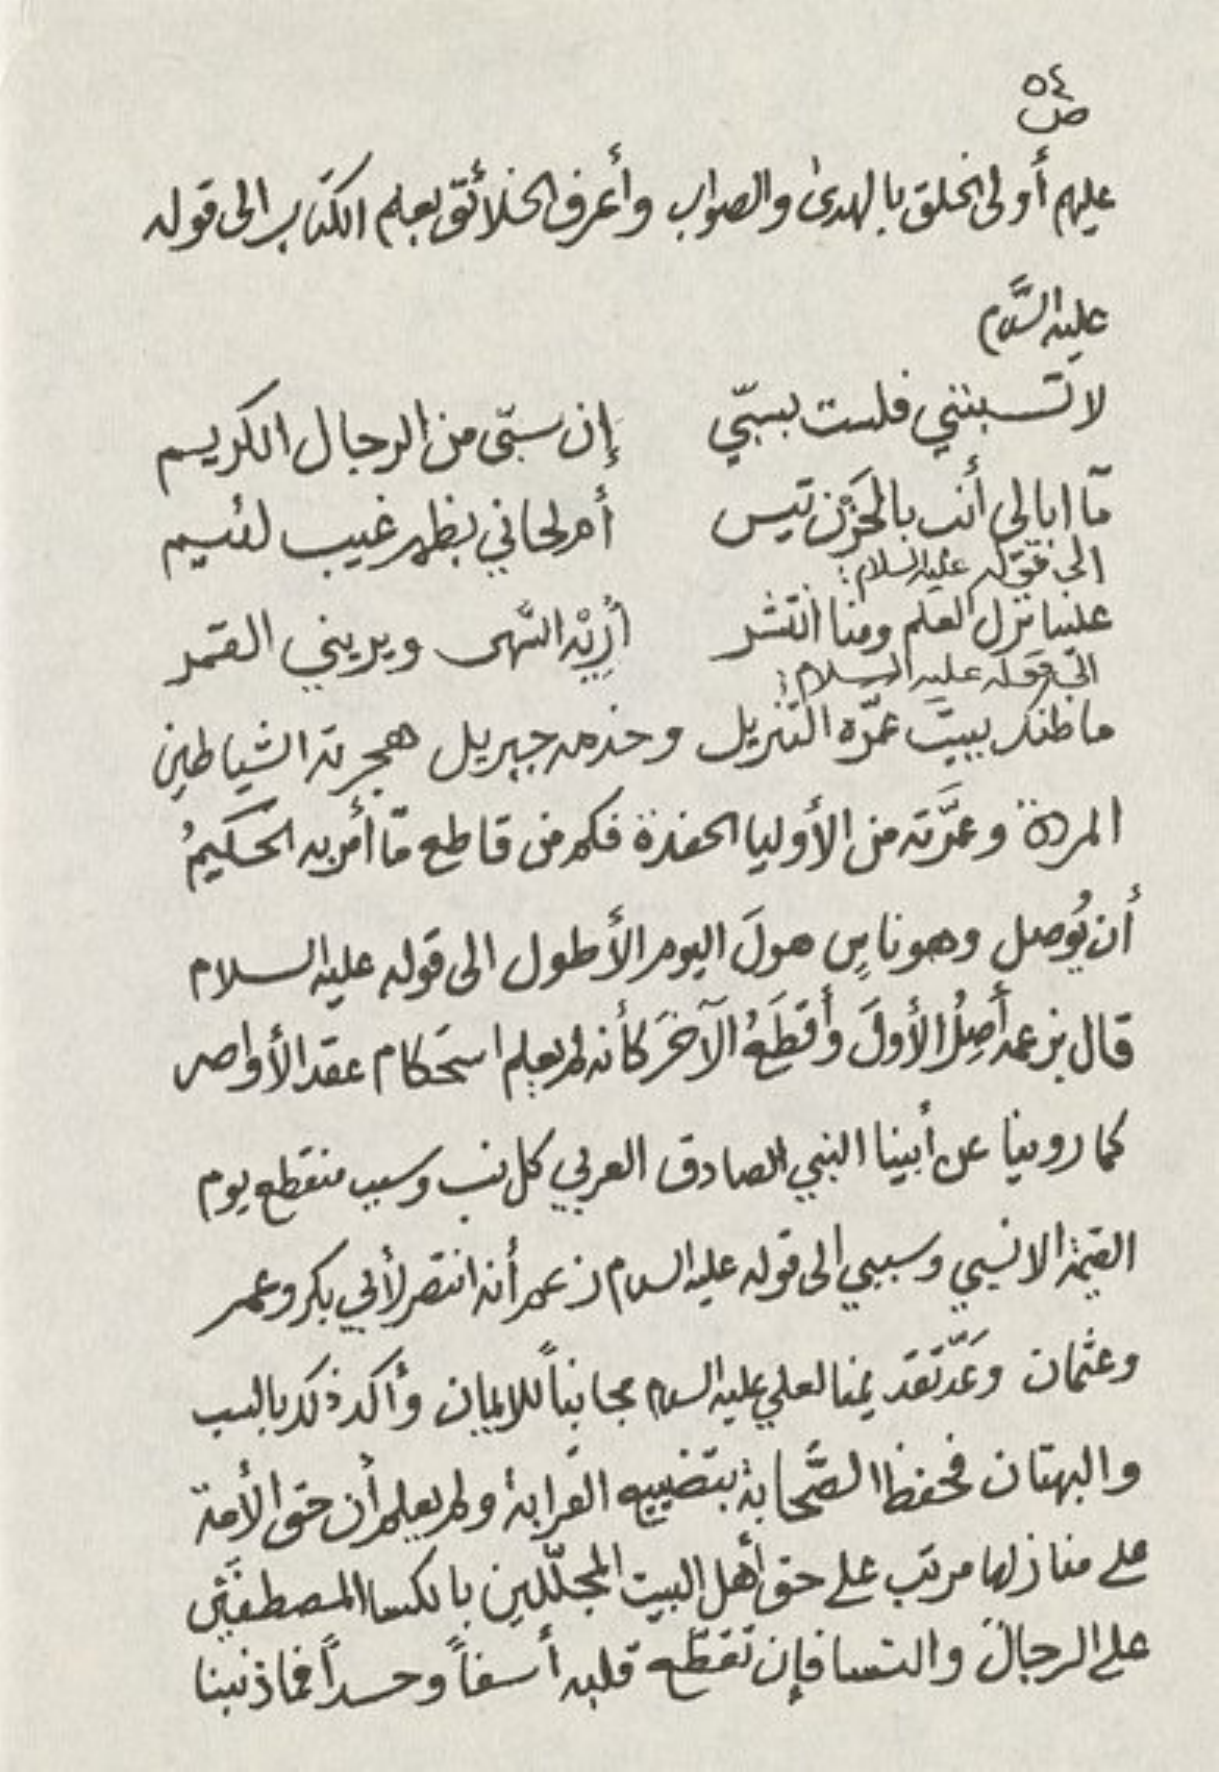 ٥٤
ص
عليهم أولى الخلق بالهدى والصواب وأعرف الخلائق بعلم الكتاب الى قوله
عليه السَّلام
لا تسبنني فلست بسبّي إن سبّي من الرجال الكريم
مآ ابالي أنب بالحَزْن تيس أم لحاني بظهر غيب لئيم
الى قوله عليه السلام:
علينا نزل العلم ومنا انتشر أُرِيْه السُّهى ويريني القمر
الى قوله عليه السلام:
ما ظنك ببيت عمّره التنزيل وخدمه جبريل هجرته الشياطين
المردة وعمَّرته من الأوليا الحفدة فكم من قاطع مّا أمر به الحكيمُ
أن يُوصل وهو ناسٍ هولَ اليوم الأطول الى قوله عليه السلام
قال بزعمه أصِلُ الأولَ وأقطَعُ الآخَرَ كأنه لم يعلم استحكام عقد الأواصر
كما روينا عن أبينا النبي الصادق العربي كل نسب وسبب منقطع يوم
القيمة الا نسبي وسببي الى قوله عليه السلام زعم أنه انتصر لأبي بكر وعمر
وعثمان وعَدّ تقديمنا لعلي عليه السلام مجانباً للايمان وأكد ذلك بالسب
والبهتان فحفظ الصَّحابة بتضييع القرابة ولم يعلم أن حق الأمة
على منازلها مرتب على حق أهل البيت المجلّلين بالكسا المصطفَين
على الرجال والنسا فإن تقطّع قلبه أسفاً وحسداً فما ذنبنا